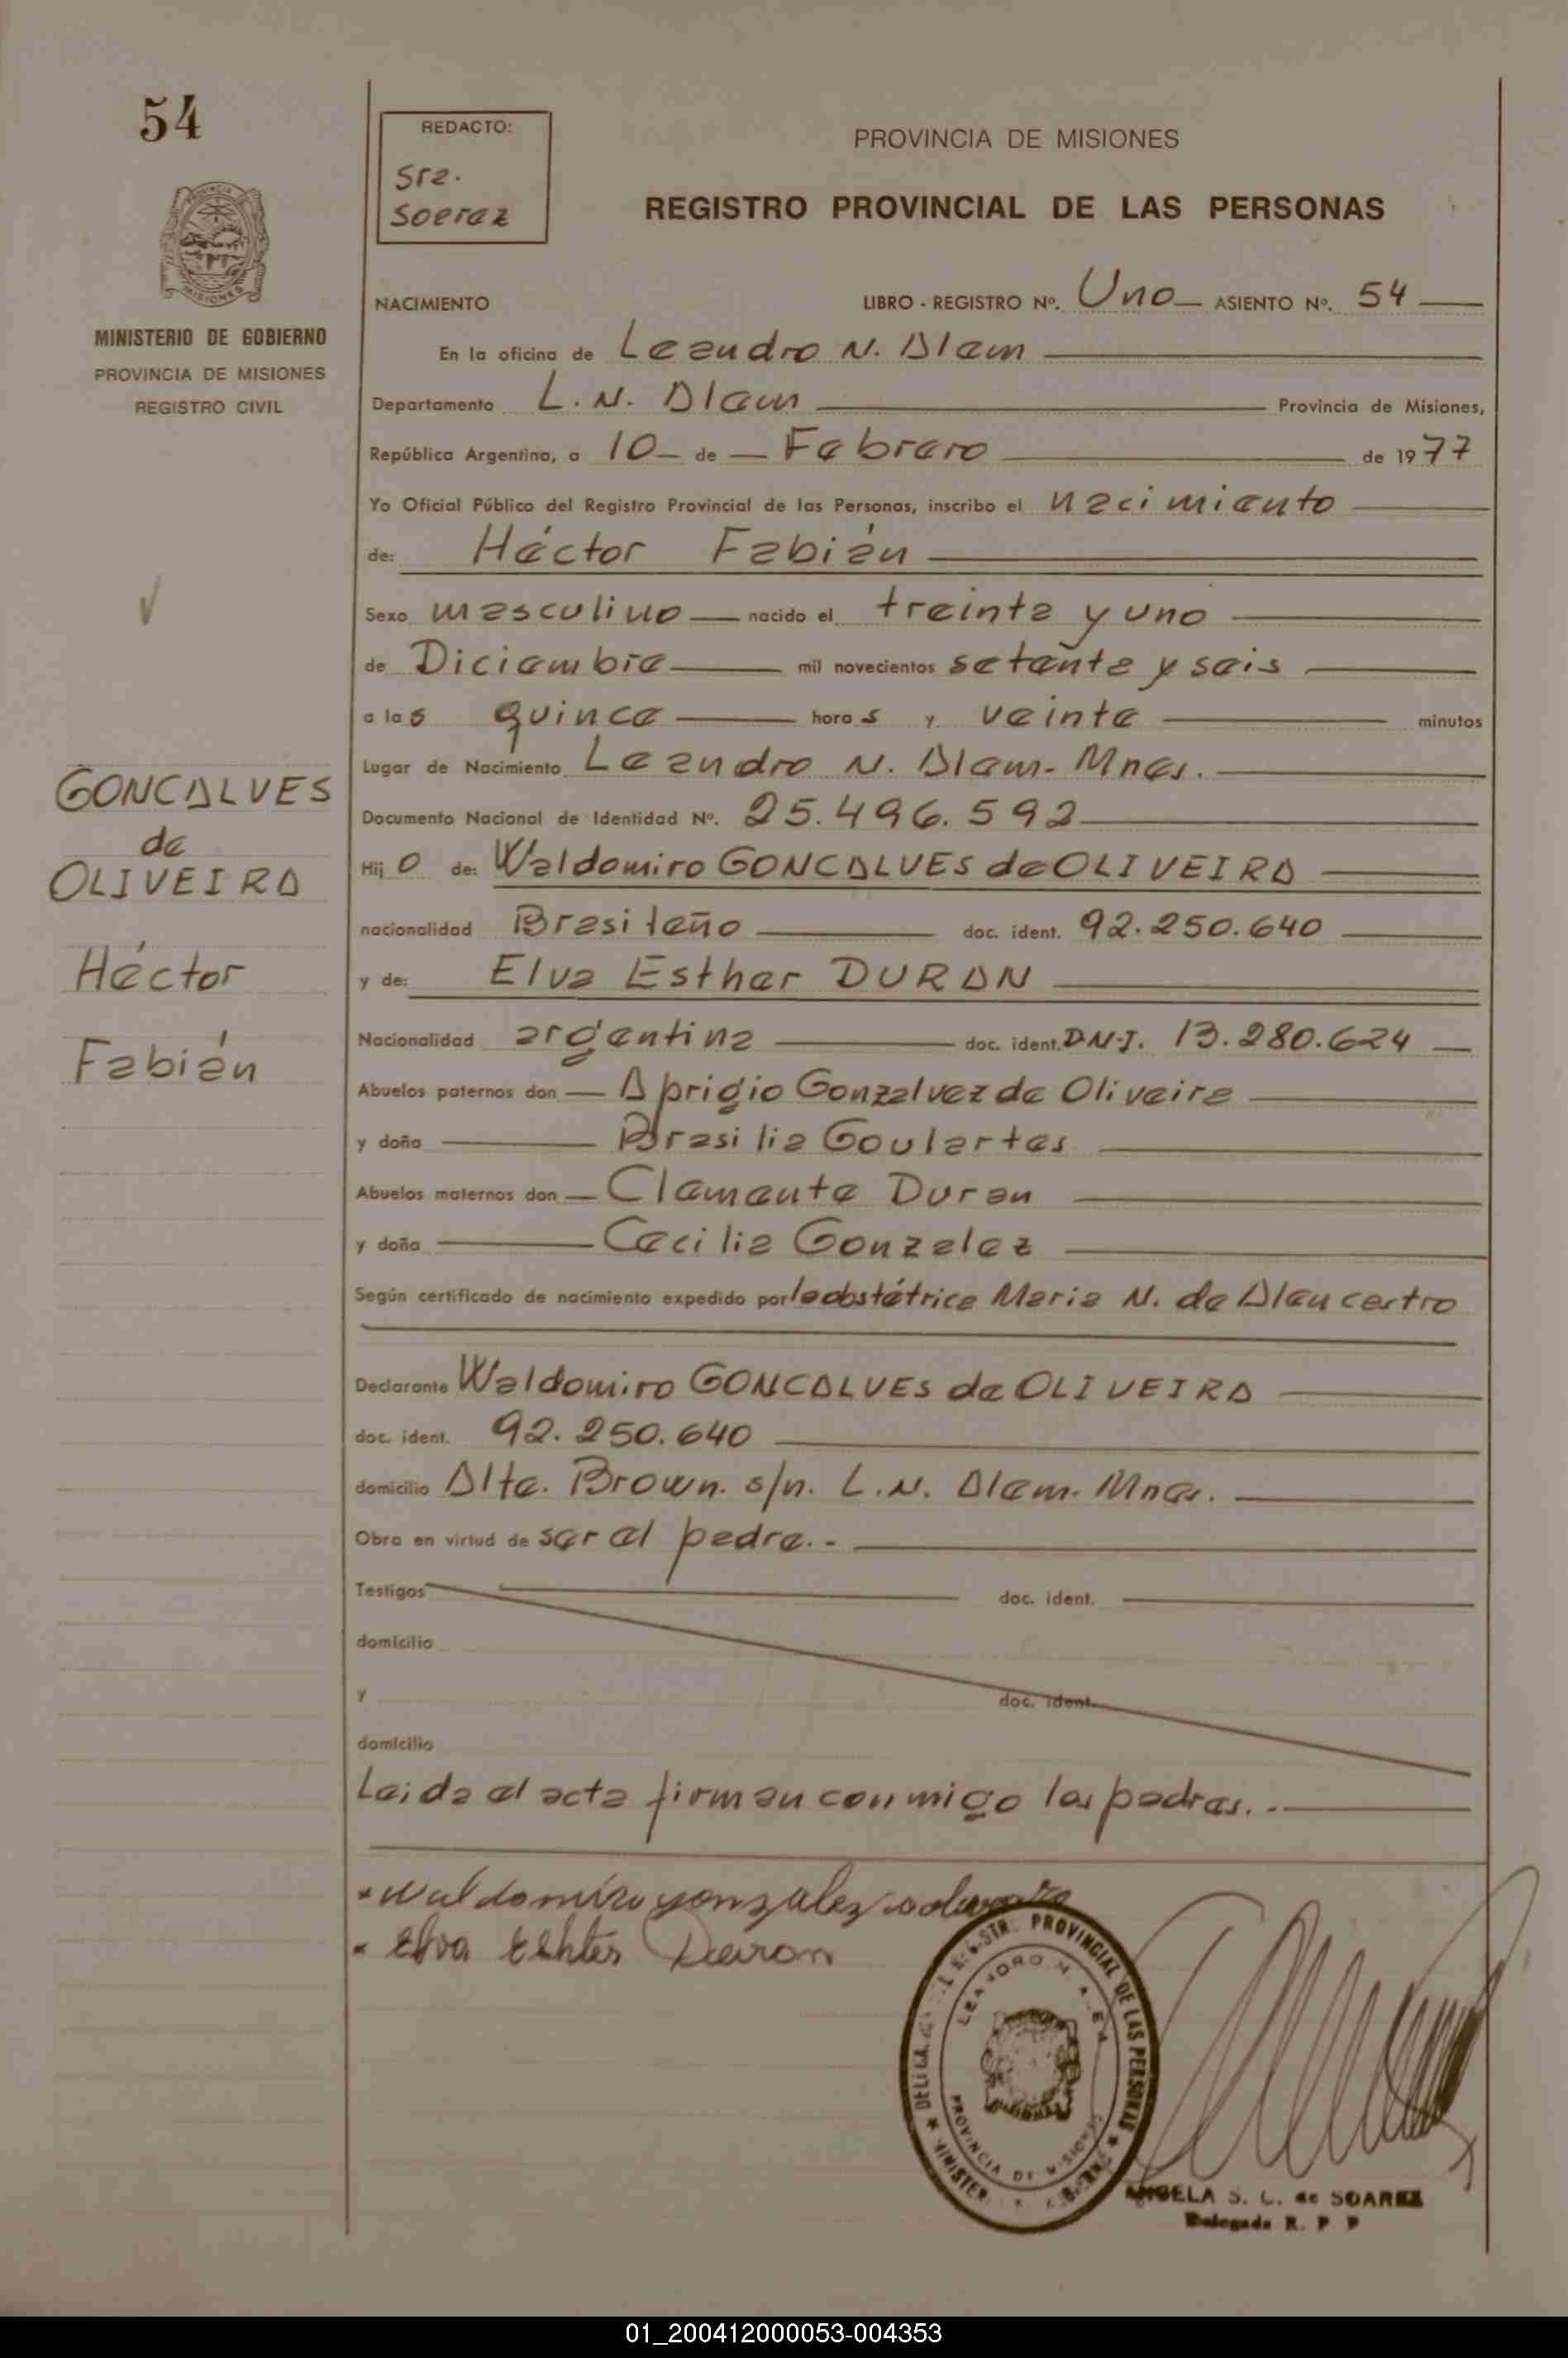 54
REDACTO:
Sra.
Soaraz
PROVINCIA DE MISIONES
REGISTRO PROVINCIAL DE LAS PERSONAS
MISIONES
MINISTERIO DE GOBIERNO
PROVINCIA DE MISIONES
REGISTRO CIVIL
NACIMIENTO LIBRO - REGISTRO Nº. Uno ASIENTO Nº. 54
En la oficina de Leandro N. Alem
Departamento L. N. Alem Provincia de Misiones,
República Argentina, a 10 de Febrero de 1977
Yo Oficial Público del Registro Provincial de las Personas, inscribo el nacimiento
de: Héctor Fabián
Sexo masculino nacido el treinta y uno
de Diciembre mil novecientos setenta y seis
a las quince horas y veinte minutos
Lugar de Nacimiento Leandro N. Alem - Mnes.
Documento Nacional de Identidad Nº. 25.496.592
Hijo de: Waldomiro GONCALVES de OLIVEIRA
nacionalidad Brasileño doc. ident. 92.250.640
y de: Elva Esther DURAN
Nacionalidad argentina doc. ident. D.N.I. 13.280.624
Abuelos paternos don Aprigio Gonzalvez de Oliveira
y doña Brasilia Goulartes
Abuelos maternos don Clemente Duran
y doña Cecilia Gonzalez
Según certificado de nacimiento expedido por la obstétrica Maria N. de Alencastro
Declarante Waldomiro GONCALVES de OLIVEIRA
doc. ident. 92.250.640
domicilio Alte. Brown. s/n. L.N. Alem. Mnes.
Obra en virtud de ser el padre.-
Testigos doc. ident.
domicilio
y doc. ident.
domicilio
Leida el acta firman conmigo los padres.-
GONCALVES
de
OLIVEIRA
Héctor
Fabián
Waldomiro gonzalez
Elva Duron
PROVINCIAL DE LAS PERSONAS
LEANDRO N. ALEM
PROVINCIA DE MISIONES
ANGELA S. L. de SOAREZ
Delegada R. P. P
01_200412000053-004353